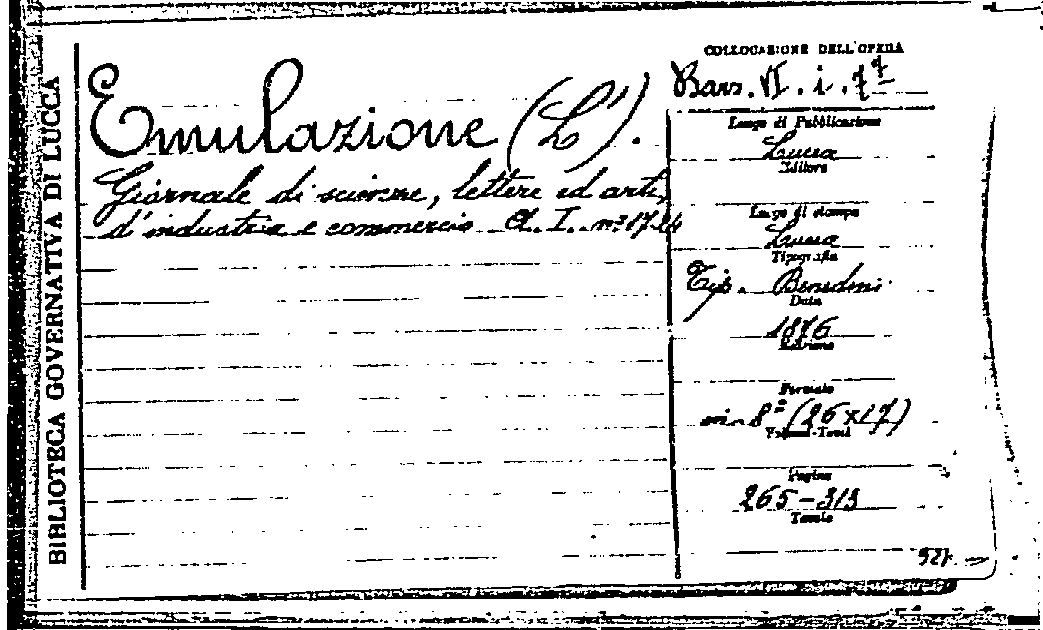 BIBLIOTECA GOVERNATIVA DI LUCCA
Emulazione (L').
Giornale di scienze, lettere ed arti,
d'industria e commercio A. I. nº 17-24
COLLOCAZIONE DELL'OPERA
VI. i.
Luogo di Pubblicazione
Lucca
Editore
Luogo di stampa
Lucca
Tipografia
Tip. Benedini
Data
1876
Edizione
Formato
in-8º (26x17)
Volumi-Tomi
Pagine
265-313
Tavole